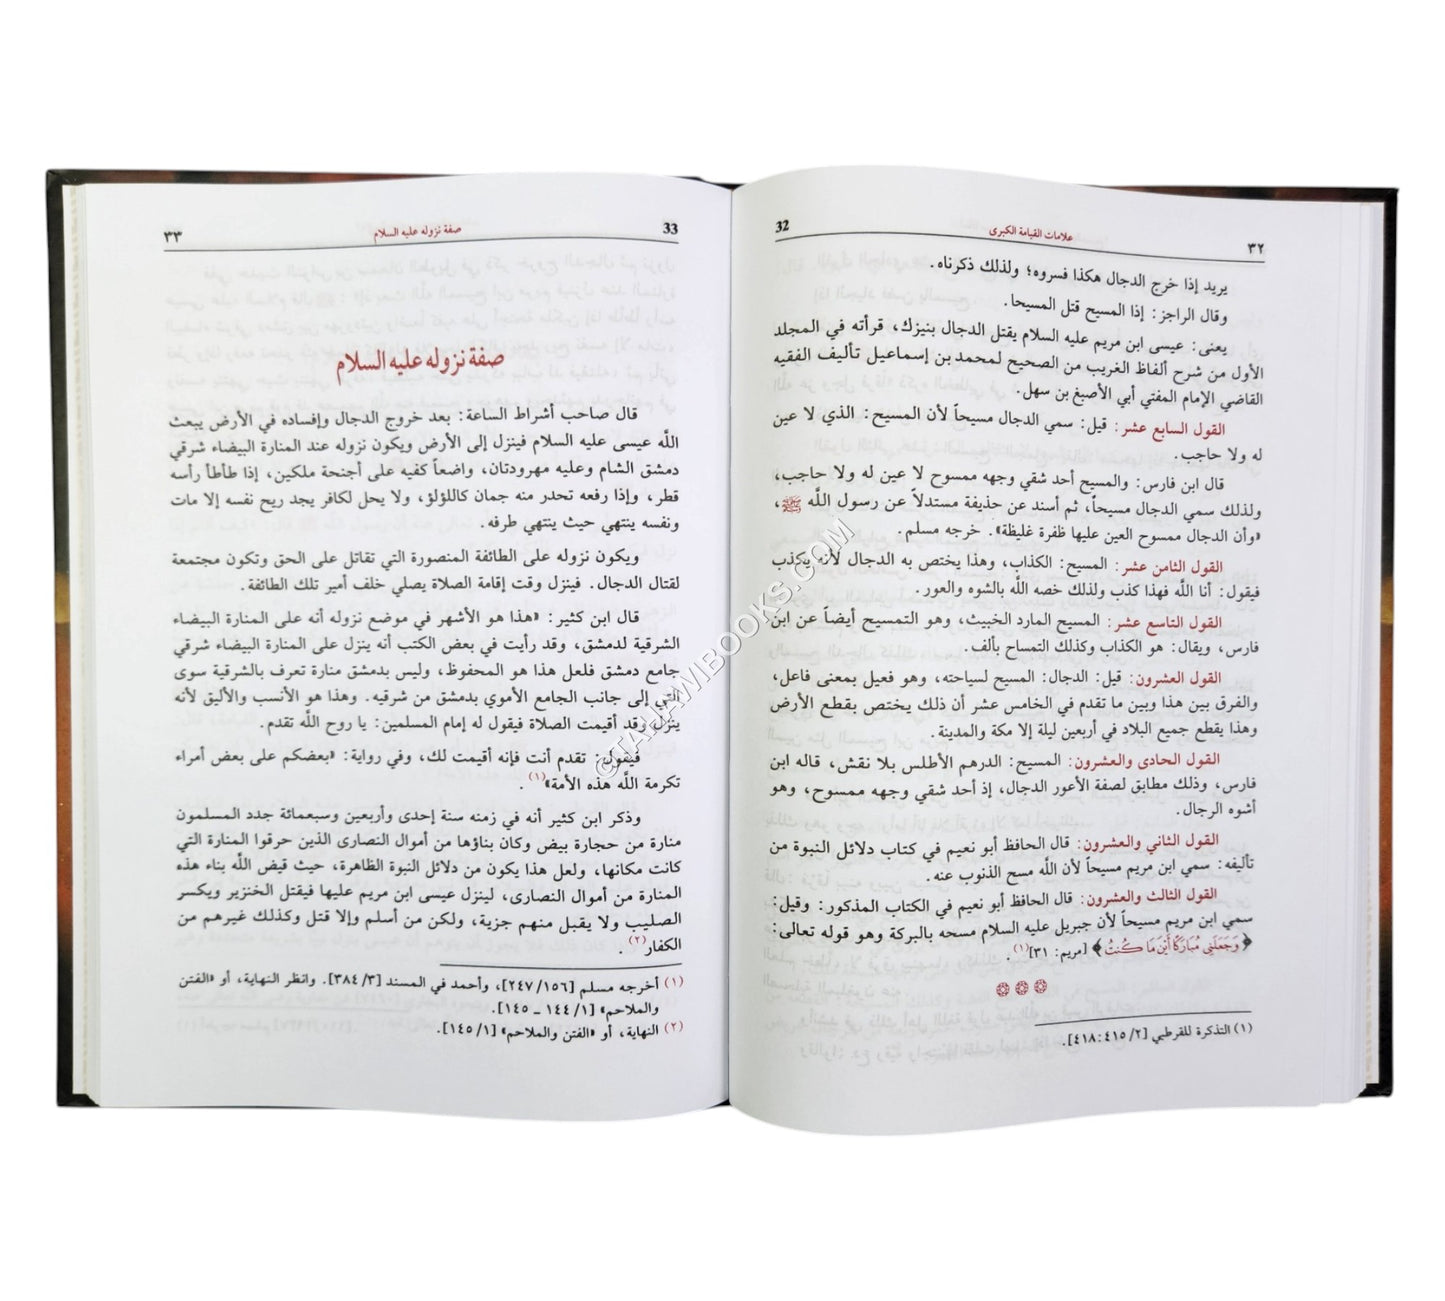 ٣٢
علامات القيامة الكبرى
32
يريد إذا خرج الدجال هكذا فسروه؛ ولذلك ذكرناه.
وقال الراجز: إذا المسيح قتل المسيحا.
يعنى: عيسى ابن مريم عليه السلام يقتل الدجال بنيزك، قرأته في المجلد
الأول من شرح ألفاظ الغريب من الصحيح لمحمد بن إسماعيل تأليف الفقيه
القاضي الإمام المفتي أبي الأصبغ بن سهل.
القول السابع عشر: قيل: سمي الدجال مسيحاً لأن المسيح: الذي لا عين
له ولا حاجب.
قال ابن فارس: والمسيح أحد شقي وجهه ممسوح لا عين له ولا حاجب،
ولذلك سمي الدجال مسيحاً، ثم أسند عن حذيفة مستدلاً عن رسول اللَّه ﷺ،
«وأن الدجال ممسوح العين عليها ظفرة غليظة». خرجه مسلم.
القول الثامن عشر: المسيح: الكذاب، وهذا يختص به الدجال لأنه يكذب
فيقول: أنا اللَّه فهذا كذب ولذلك خصه اللَّه بالشوه والعور.
القول التاسع عشر: المسيح المارد الخبيث، وهو التمسيح أيضاً عن ابن
فارس، ويقال: هو الكذاب وكذلك التمساح بألف.
القول العشرون: قيل: الدجال: المسيح لسياحته، وهو فعيل بمعنى فاعل،
والفرق بين هذا وبين ما تقدم في الخامس عشر أن ذلك يختص بقطع الأرض
وهذا يقطع جميع البلاد في أربعين ليلة إلا مكة والمدينة.
القول الحادى والعشرون: المسيح: الدرهم الأطلس بلا نقش، قاله ابن
فارس، وذلك مطابق لصفة الأعور الدجال، إذ أحد شقي وجهه ممسوح، وهو
أشوه الرجال.
القول الثاني والعشرون: قال الحافظ أبو نعيم في كتاب دلائل النبوة من
تأليفه: سمي ابن مريم مسيحاً لأن اللَّه مسح الذنوب عنه.
القول الثالث والعشرون: قال الحافظ أبو نعيم في الكتاب المذكور: وقيل:
سمي ابن مريم مسيحاً لأن جبريل عليه السلام مسحه بالبركة وهو قوله تعالى:
﴿وَجَعَلَنِي مُبَارَكًا أَيْنَ مَا كُنتُ﴾ [مريم: ٣١](١).
(١) التذكرة للقرطبي [٢/ ٤١٥: ٤١٨].
33
صفة نزوله عليه السلام
٣٣
صفة نزوله عليه السلام
قال صاحب أشراط الساعة: بعد خروج الدجال وإفساده في الأرض يبعث
اللَّه عيسى عليه السلام فينزل إلى الأرض ويكون نزوله عند المنارة البيضاء شرقي
دمشق الشام وعليه مهرودتان، واضعاً كفيه على أجنحة ملكين، إذا طأطأ رأسه
قطر، وإذا رفعه تحدر منه جمان كاللؤلؤ، ولا يحل لكافر يجد ريح نفسه إلا مات
ونفسه ينتهي حيث ينتهي طرفه.
ويكون نزوله على الطائفة المنصورة التي تقاتل على الحق وتكون مجتمعة
لقتال الدجال. فينزل وقت إقامة الصلاة يصلي خلف أمير تلك الطائفة.
قال ابن كثير: «هذا هو الأشهر في موضع نزوله أنه على المنارة البيضاء
الشرقية لدمشق، وقد رأيت في بعض الكتب أنه ينزل على المنارة البيضاء شرقي
جامع دمشق فلعل هذا هو المحفوظ، وليس بدمشق منارة تعرف بالشرقية سوى
التي إلى جانب الجامع الأموي بدمشق من شرقيه. وهذا هو الأنسب والأليق لأنه
ينزل وقد أقيمت الصلاة فيقول له إمام المسلمين: يا روح اللَّه تقدم.
فيقول: تقدم أنت فإنه أقيمت لك، وفي رواية: «بعضكم على بعض أمراء
تكرمة اللَّه هذه الأمة»(١).
وذكر ابن كثير أنه في زمنه سنة إحدى وأربعين وسبعمائة جدد المسلمون
منارة من حجارة بيض وكان بناؤها من أموال النصارى الذين حرقوا المنارة التي
كانت مكانها، ولعل هذا يكون من دلائل النبوة الظاهرة، حيث قيض اللَّه بناء هذه
المنارة من أموال النصارى، لينزل عيسى ابن مريم عليها فيقتل الخنزير ويكسر
الصليب ولا يقبل منهم جزية، ولكن من أسلم وإلا قتل وكذلك غيرهم من
الكفار(٢).
(١) أخرجه مسلم [٢٤٧/١٥٦]، وأحمد في المسند [٣٨٤/٣]. وانظر النهاية، أو «الفتن
والملاحم» [١/ ١٤٤ ـ ١٤٥].
(٢) النهاية، أو «الفتن والملاحم» [١/ ١٤٥].
©TAHAMIBOOKS.COM